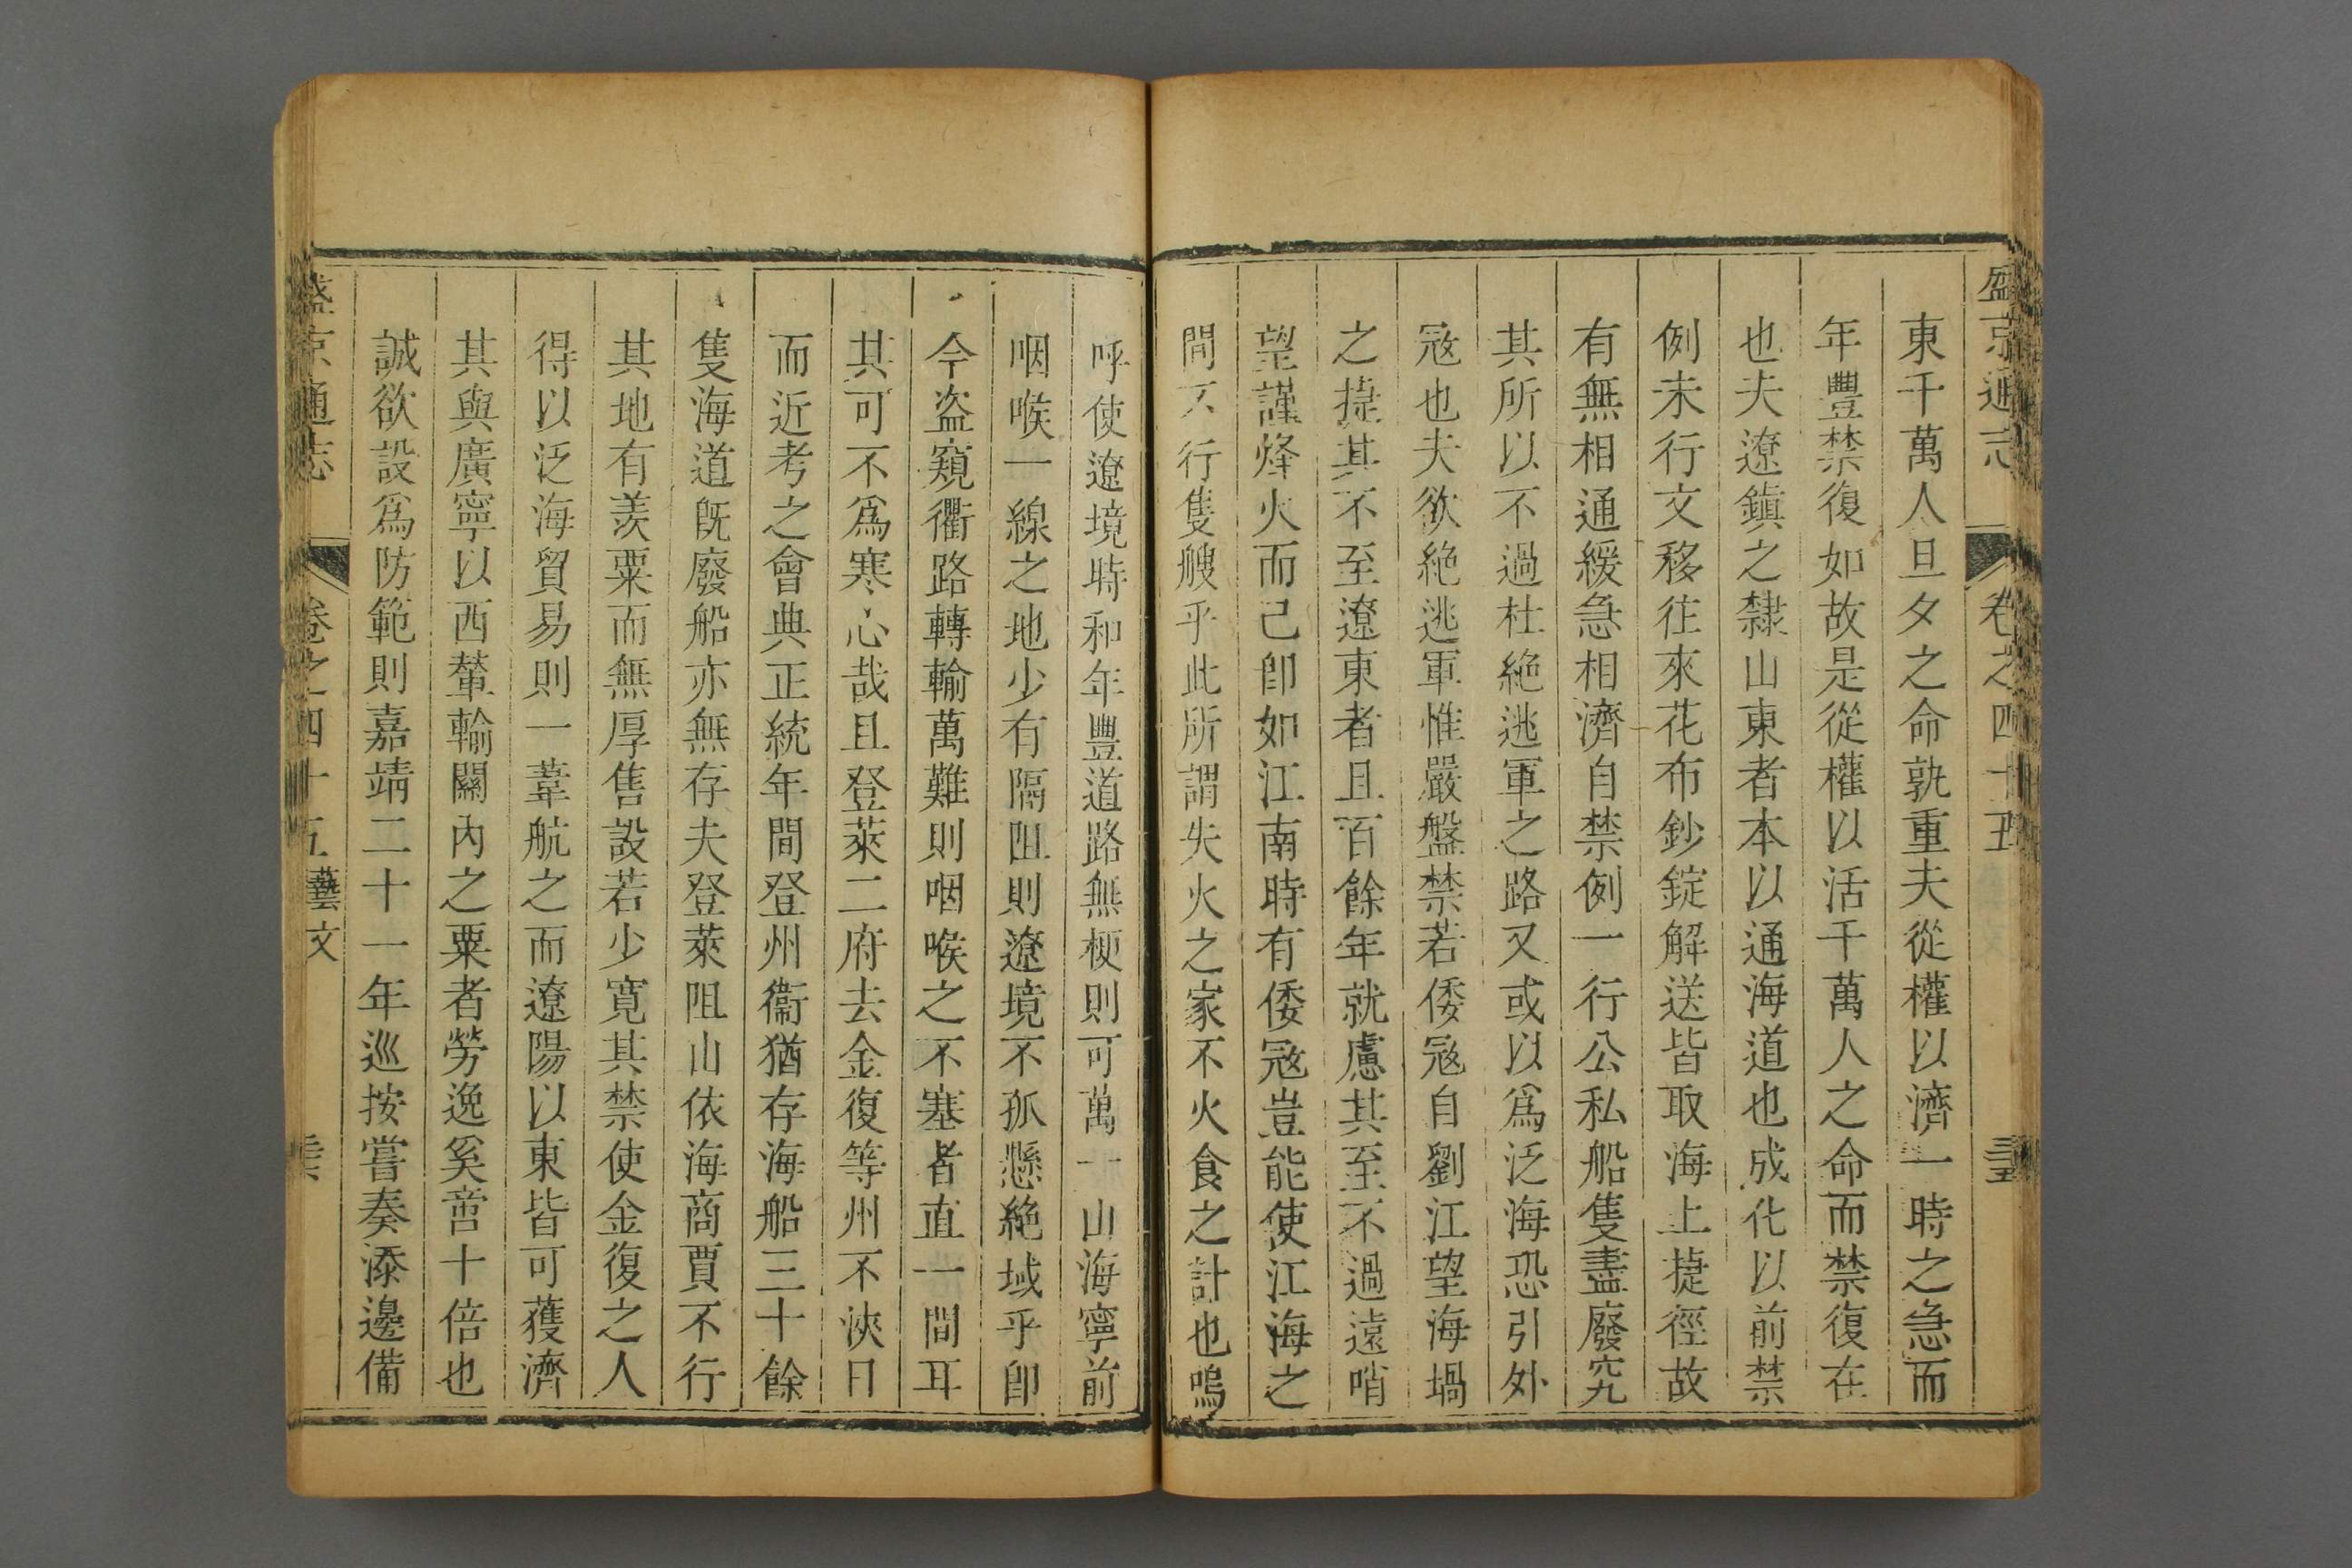 盛京通志 卷之四十五
東千萬人旦夕之命孰重夫從權以濟一時之急而
年豐禁復如故是從權以活千萬人之命而禁復在
也夫遼鎮之隸山東者本以通海道也成化以前禁
例未行文移往來花布鈔錠解送皆取海上捷徑故
有無相通緩急相濟自禁例一行公私船隻盡廢究
其所以不過杜絶逃軍之路又或以爲泛海恐引外
冦也夫欲絶逃軍惟嚴盤禁若倭冦自劉江望海堝
之捷其不至遼東者且百餘年就慮其至不過遠哨
望謹烽火而已卽如江南時有倭冦豈能使江海之
間不行隻艘乎此所謂失火之家不火食之計也嗚
呼使遼境時和年豐道路無梗則可萬一山海寧前
咽喉一線之地少有隔阻則遼境不孤懸絶域乎卽
今盗窺衢路轉輸萬難則咽喉之不塞者直一間耳
其可不爲寒心哉且登萊二府去金復等州不浹日
而近考之會典正統年間登州衞猶存海船三十餘
隻海道旣廢船亦無存夫登萊阻山依海商賈不行
其地有羡粟而無厚售設若少寬其禁使金復之人
得以泛海貿易則一葦航之而遼陽以東皆可獲濟
其與廣寧以西輦輸關內之粟者勞逸奚啻十倍也
誠欲設爲防範則嘉靖二十一年巡按嘗奏添邊備
盛京通志 卷之四十五 藝文